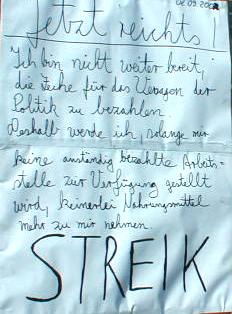 02.09.200
Jetzt reichts!
Ich bin nicht weiter bereit,
die Zeche für das Versagen der
Politik zu bezahlen.
Deshalb werde ich, solange mir
keine anständig bezahlte Arbeits=
stelle zur Verfügung gestellt
wird, keinerlei Nahrungsmittel
mehr zu mir nehmen.
STREIK